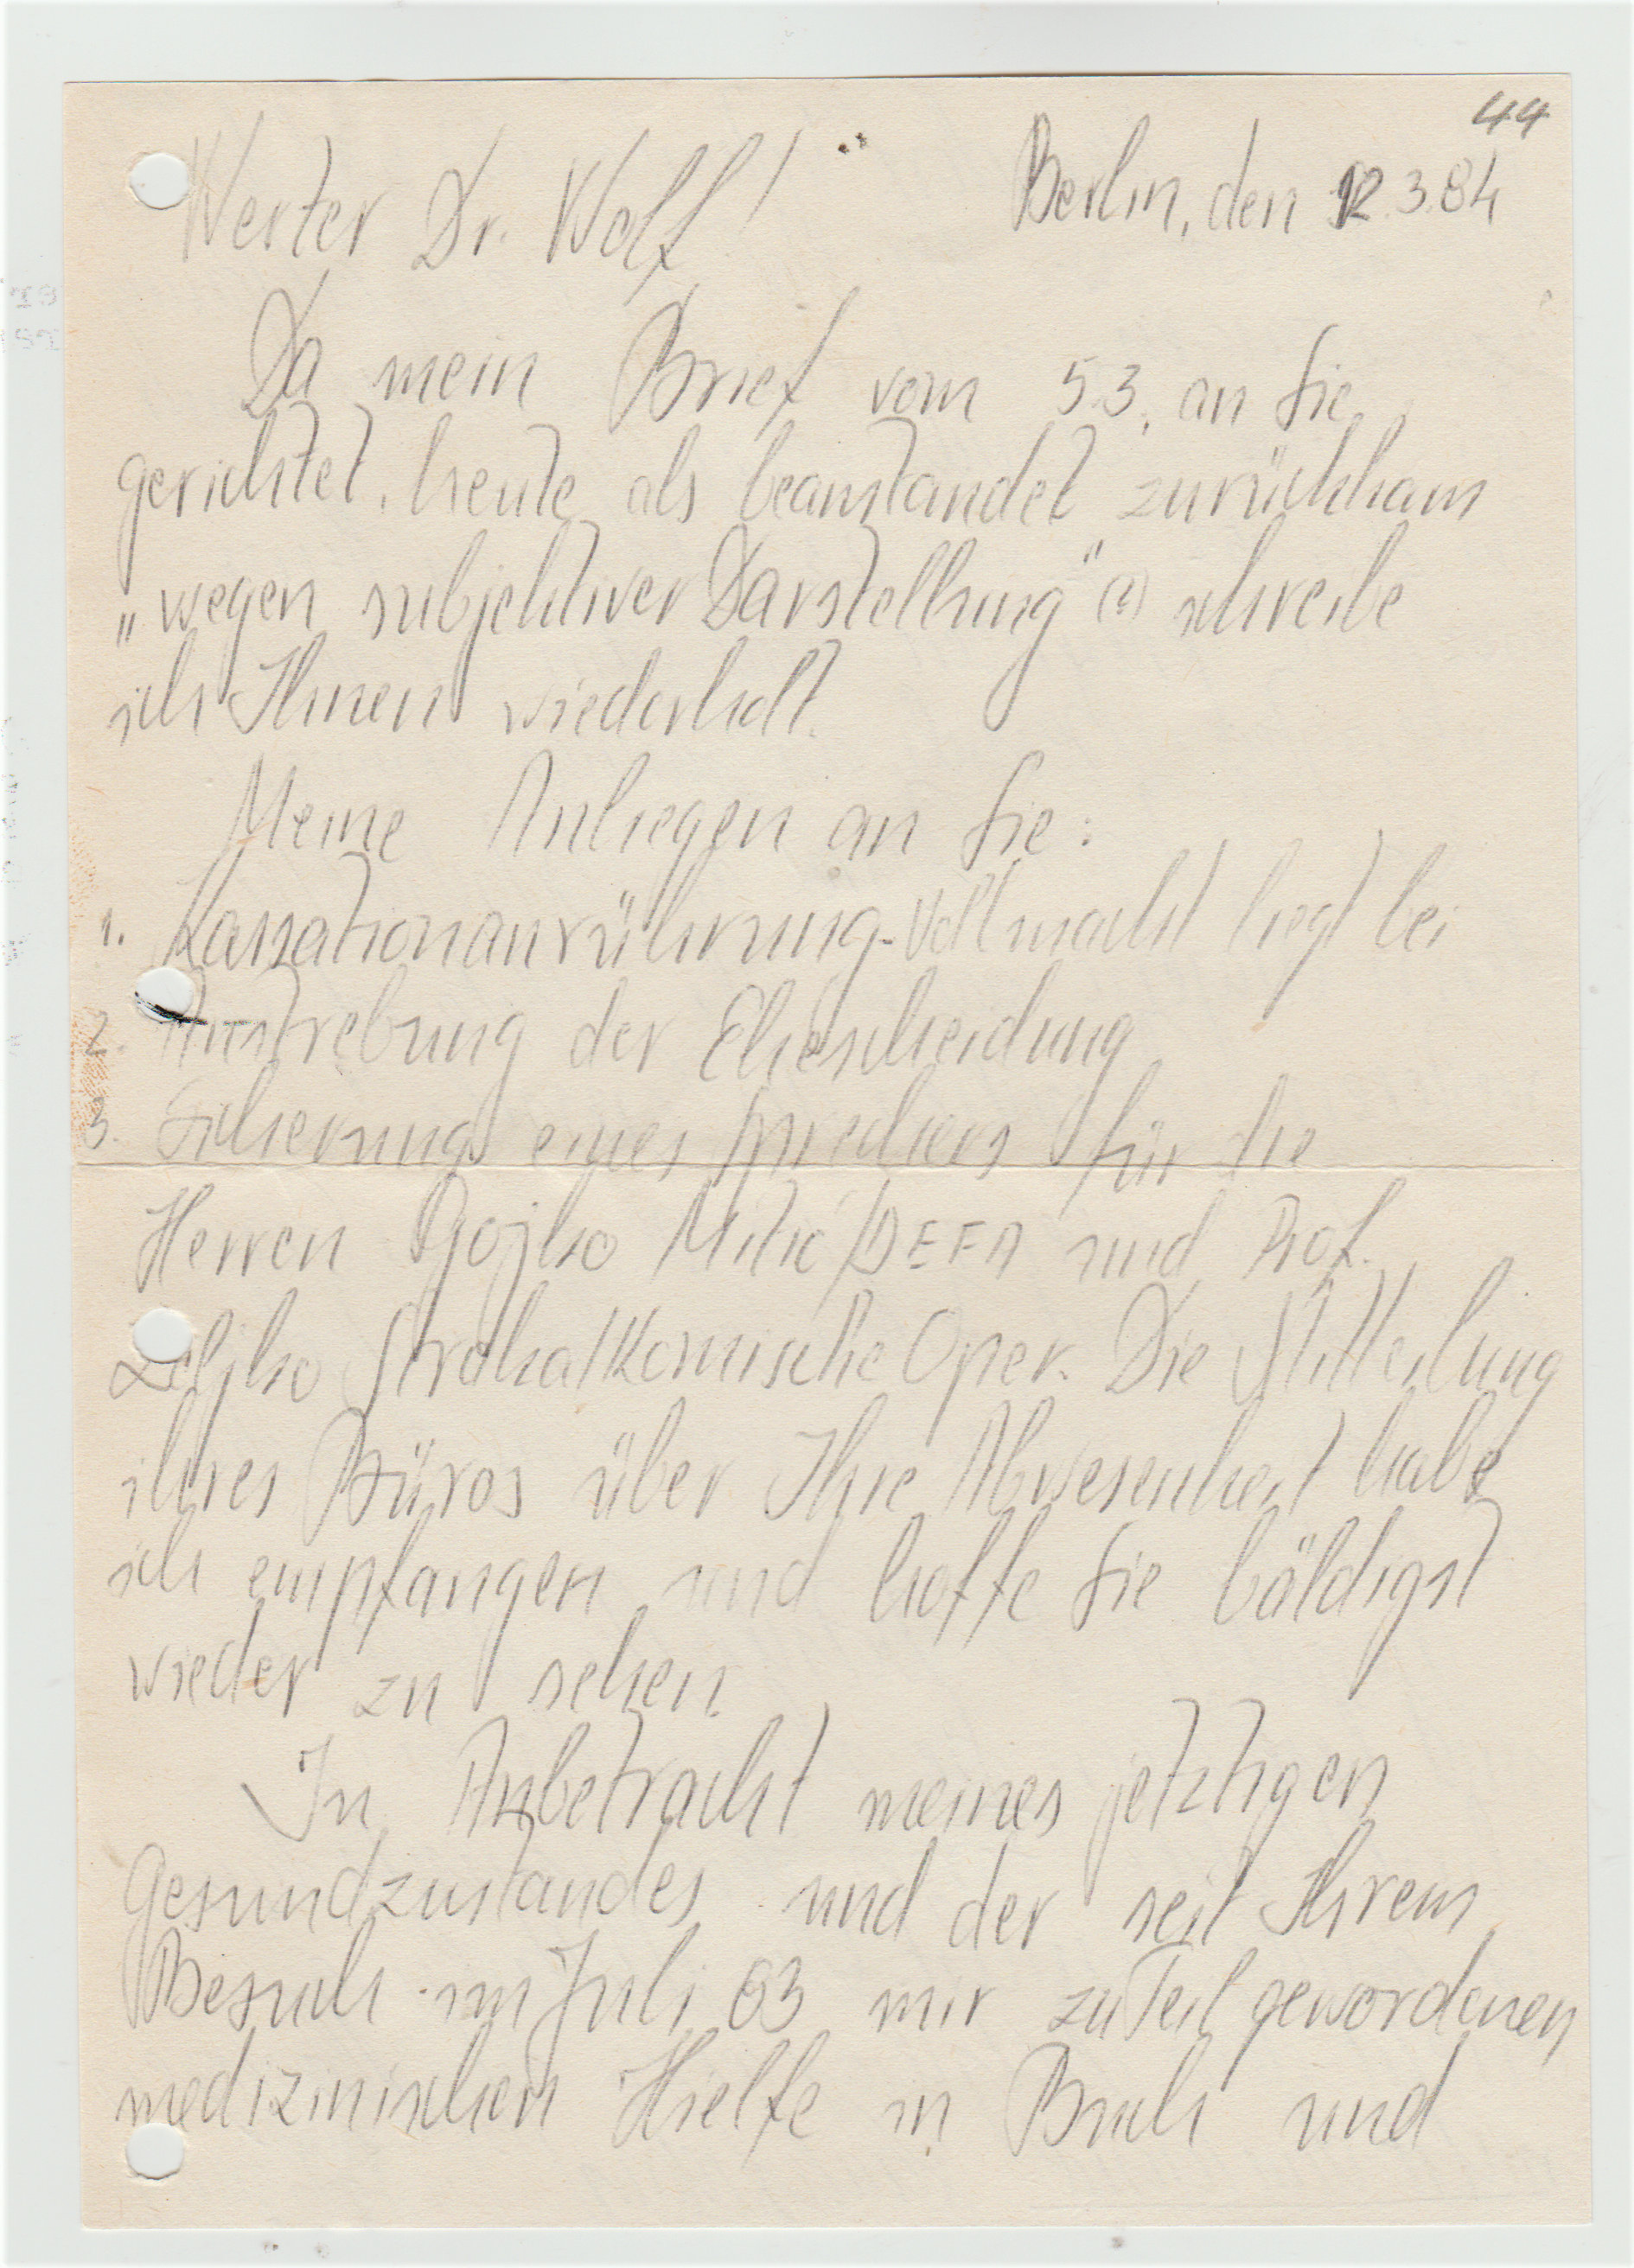 44
Werter Dr. Wolf! Berlin, den 12.3.84
Da mein Brief vom 5.3. an Sie
gerichtet, heute als beanstandet zurückkam
„wegen subjektiver Darstellung" (?) schreibe
ich Ihnen wiederholt.
Meine Anliegen an Sie:
1. Kassationanrührung-Vollmacht liegt bei
2. Anstrebung der Ehescheidung
3. Sicherung eines Sprechers für die
Herren Gojko Mitic/DEFA und Prof.
Zeljko Straka/Komische Oper. Die Mitteilung
ihres Büros über Ihre Abwesenheit habe
ich empfangen und hoffe Sie bäldigst
wieder zu sehen.
In Anbetracht meines jetztigen
Gesundzustandes und der seit Ihrem
Besuch im Juli 83 mir zuTeil gewordenen
medizinischen Hielfe in Buch und